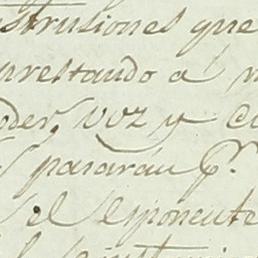 strusiones que
prestando a
oder, voz y
pararán pr.
el esponente